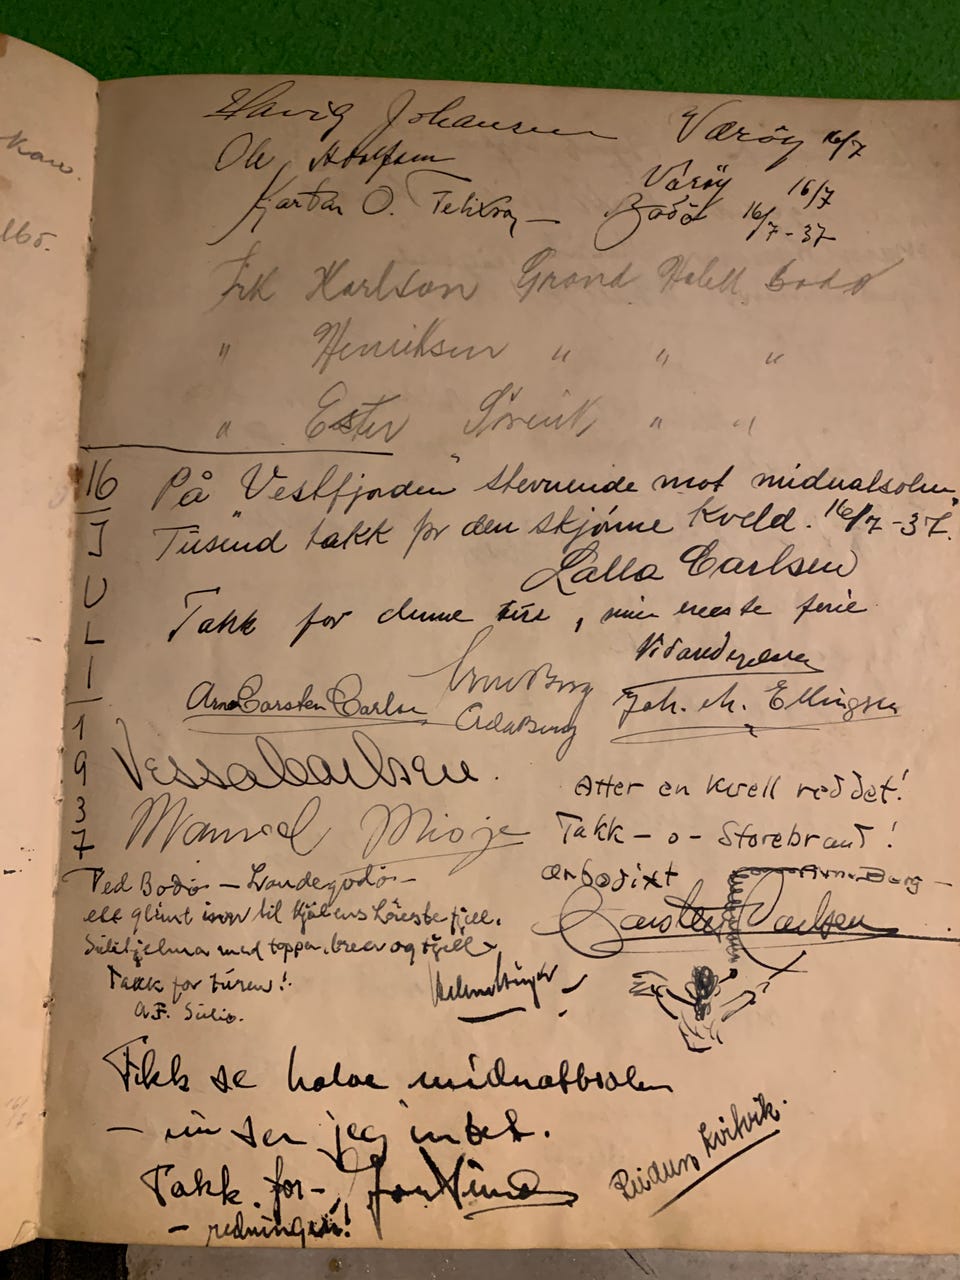 Kaw.
Havig Johansen Værøy 16/7
Ole Adolfsen Værøy 16/7
Kjartan O. Bodø 16/7-37
Frk Karlson Grand Hotell Bodø
" Henriksen " " "
" Ester " "
16 JULI 1937
På "Vestfjorden" stevnende mot midnatsolen,
Tusind takk for den skjønne kveld. 16/7-37.
Lalla Carlsen
Takk for denne, min eneste ferie
Arne Carsten Carlsen
Joh. M. Ellingsen
Vessa Carlsen.
Atter en kvell reddet!
Takk - o - Storebrand!
ærbødixt
Arne Berg
Carsten Carlsen
Ved Bodø - Landegodø -
ett glimt inn til Kjølens høieste fjell.
Sulitjelma med topper, breer og fjell
Takk for turen!
A.F. Sulis.
Fikk se halve midnattsolen
- nu ser jeg intet.
Takk for -
- redningen!
Reidun Kvitvik.